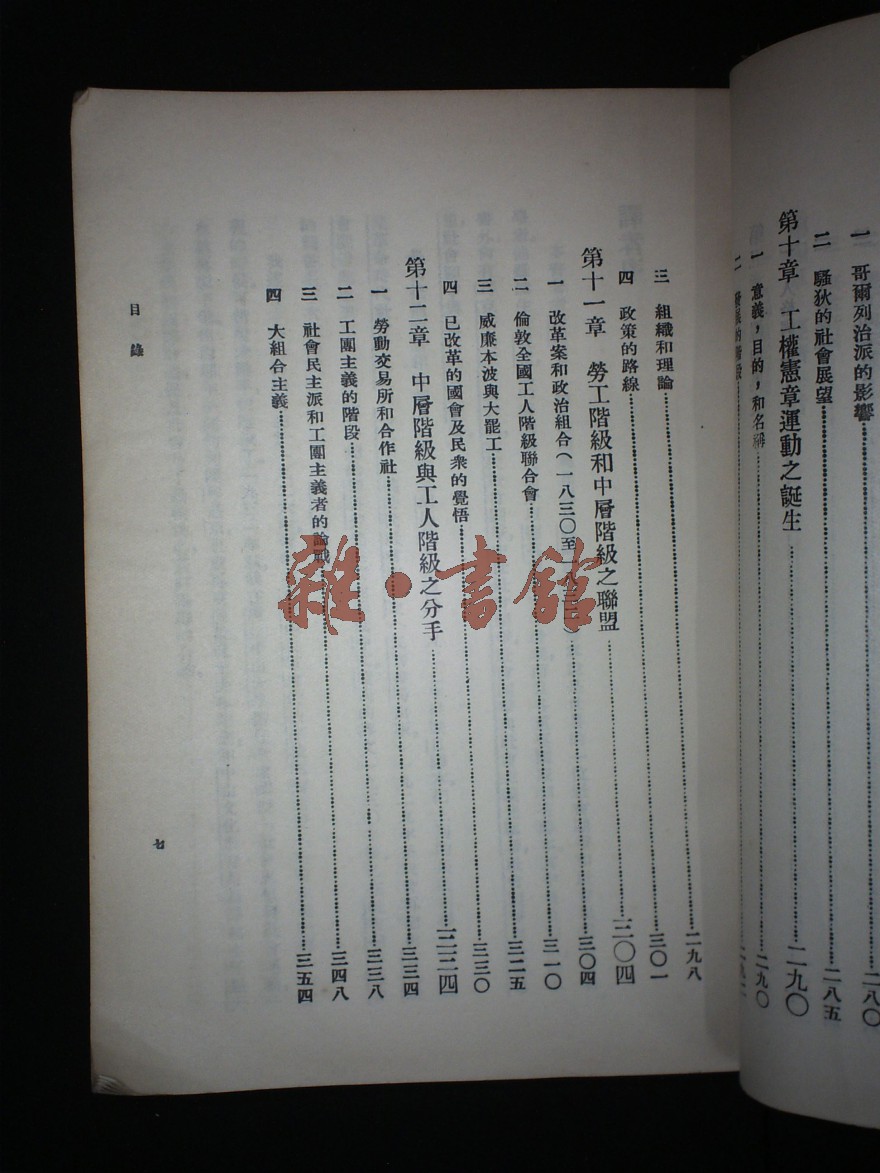 一 哥爾列治派的影響……二八〇
二 騷狄的社會展望……二八五
第十章 工權憲章運動之誕生……二九〇
一 意義，目的，和名稱……二九〇
二 發展的階段……
三 組織和理論……二九八
四 政策的路線……三〇一
第十一章 勞工階級和中層階級之聯盟……三〇四
一 改革案和政治組合（一八三〇至一八三二）……三〇四
二 倫敦全國工人階級聯合會……三一〇
三 威廉本波與大罷工……三二五
四 已改革的國會及民衆的覺悟……三三〇
第十二章 中層階級與工人階級之分手……三三四
一 勞動交易所和合作社……三三四
二 工團主義的階段……三三八
三 社會民主派和工團主義者的論戰……三四八
四 大組合主義……三五四
目錄
七
雜·書館